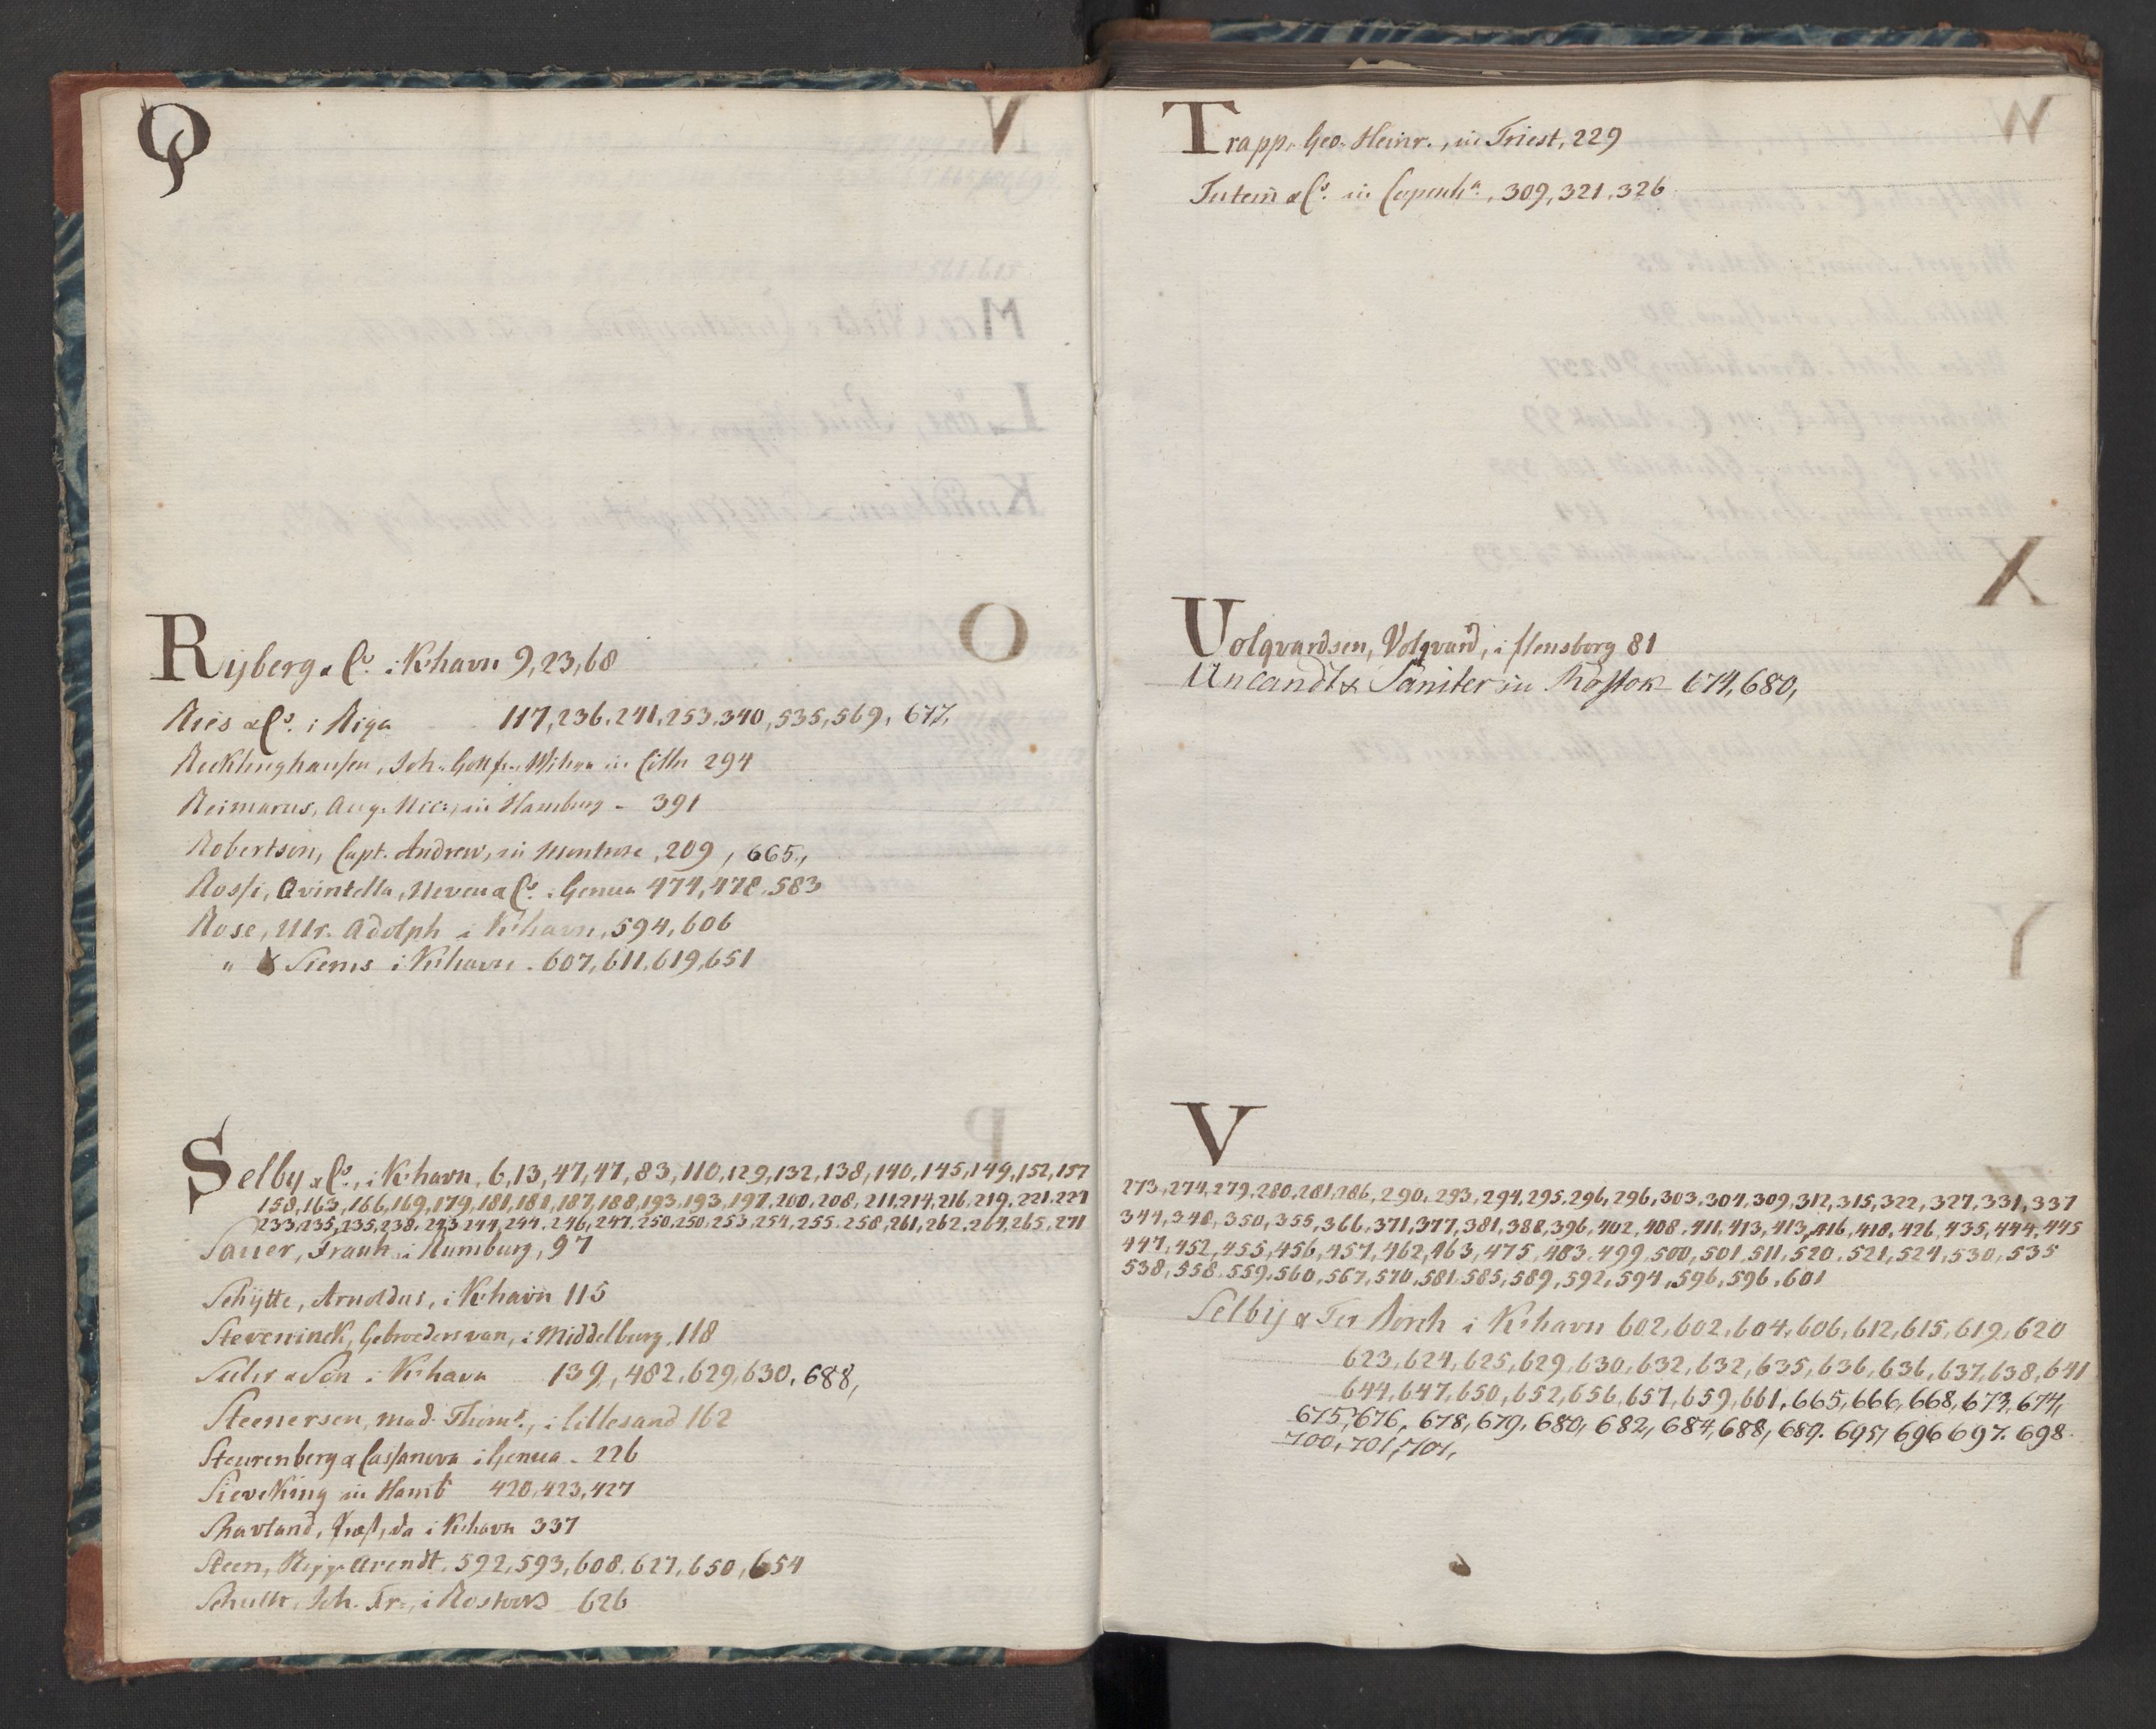 Q
Ryberg & Co. i Kbhavn 9, 23, 68
Ries & Co. i Riga 117, 236, 241, 253, 340, 535, 569, 677,
Recklinghausen, Joh. Gottfr. Wilh. in Cölln 294
Reimarus, Aug. Nic., in Hamburg - 391
Robertson, Capt. Andrew, in Montrose, 209, 665,
Rossi, Qvintella, Neveu & Co. i Genua 474, 478, 583
Rose, Ulr. Adolph i Kbhavn, 594, 606
" & Siems i Kbhavn - 607, 611, 619, 651
Selby & Co., i Kbhavn, 6, 13, 47, 47, 83, 110, 129, 132, 138, 140, 145, 149, 152, 157
158, 163, 166, 169, 179, 181, 181, 187, 188, 193, 193, 197, 200, 208, 211, 214, 216, 219, 221, 221
233, 235, 235, 238, 243, 244, 244, 246, 247, 250, 250, 253, 254, 255, 258, 261, 262, 264, 265, 271
Sauer, Frantz, i Rumburg, 97
Schytte, Arnoldus, i Kbhavn 115
Steveninck, Gebroeders van, i Middelburg, 118
& Søn i Kbhavn 139, 482, 629, 630, 688,
Steenersen, mad. Thoms., i Lillesand 162
Steurenberg & Cassanova i Genua - 226
Sieveking in Hamb 420, 423, 427
i Kbhavn 337
Steen, Arendt, 592, 593, 608, 627, 650, 654
Schultz, Joh. Fr., i Rostock 626
Trapp, Geo. Heinr., in Triest, 229
Tutein & Co. in Copenh., 309, 321, 326
Volqvardsen, Volqvard, i Flensborg 81
Uncandt & Saniter in Rostok 674, 680,
V
273, 274, 279, 280, 281, 286, 290, 293, 294, 295, 296, 296, 303, 304, 309, 312, 315, 322, 327, 331, 337
344, 348, 350, 355, 366, 371, 377, 381, 388, 396, 402, 408, 411, 413, 413, 416, 418, 426, 435, 444, 445
447, 452, 455, 456, 457, 462, 463, 475, 483, 499, 500, 501, 511, 520, 521, 524, 530, 535
538, 558, 559, 560, 567, 570, 581, 585, 589, 592, 594, 596, 596, 601
Selby & Ter Borch i Kbhavn 602, 602, 604, 606, 612, 615, 619, 620
623, 624, 625, 629, 630, 632, 632, 635, 636, 636, 637, 638, 641
644, 647, 650, 652, 656, 657, 659, 661, 665, 666, 668, 673, 674,
675, 676, 678, 679, 680, 682, 684, 688, 689, 695, 696 697, 698
700, 701, 701,